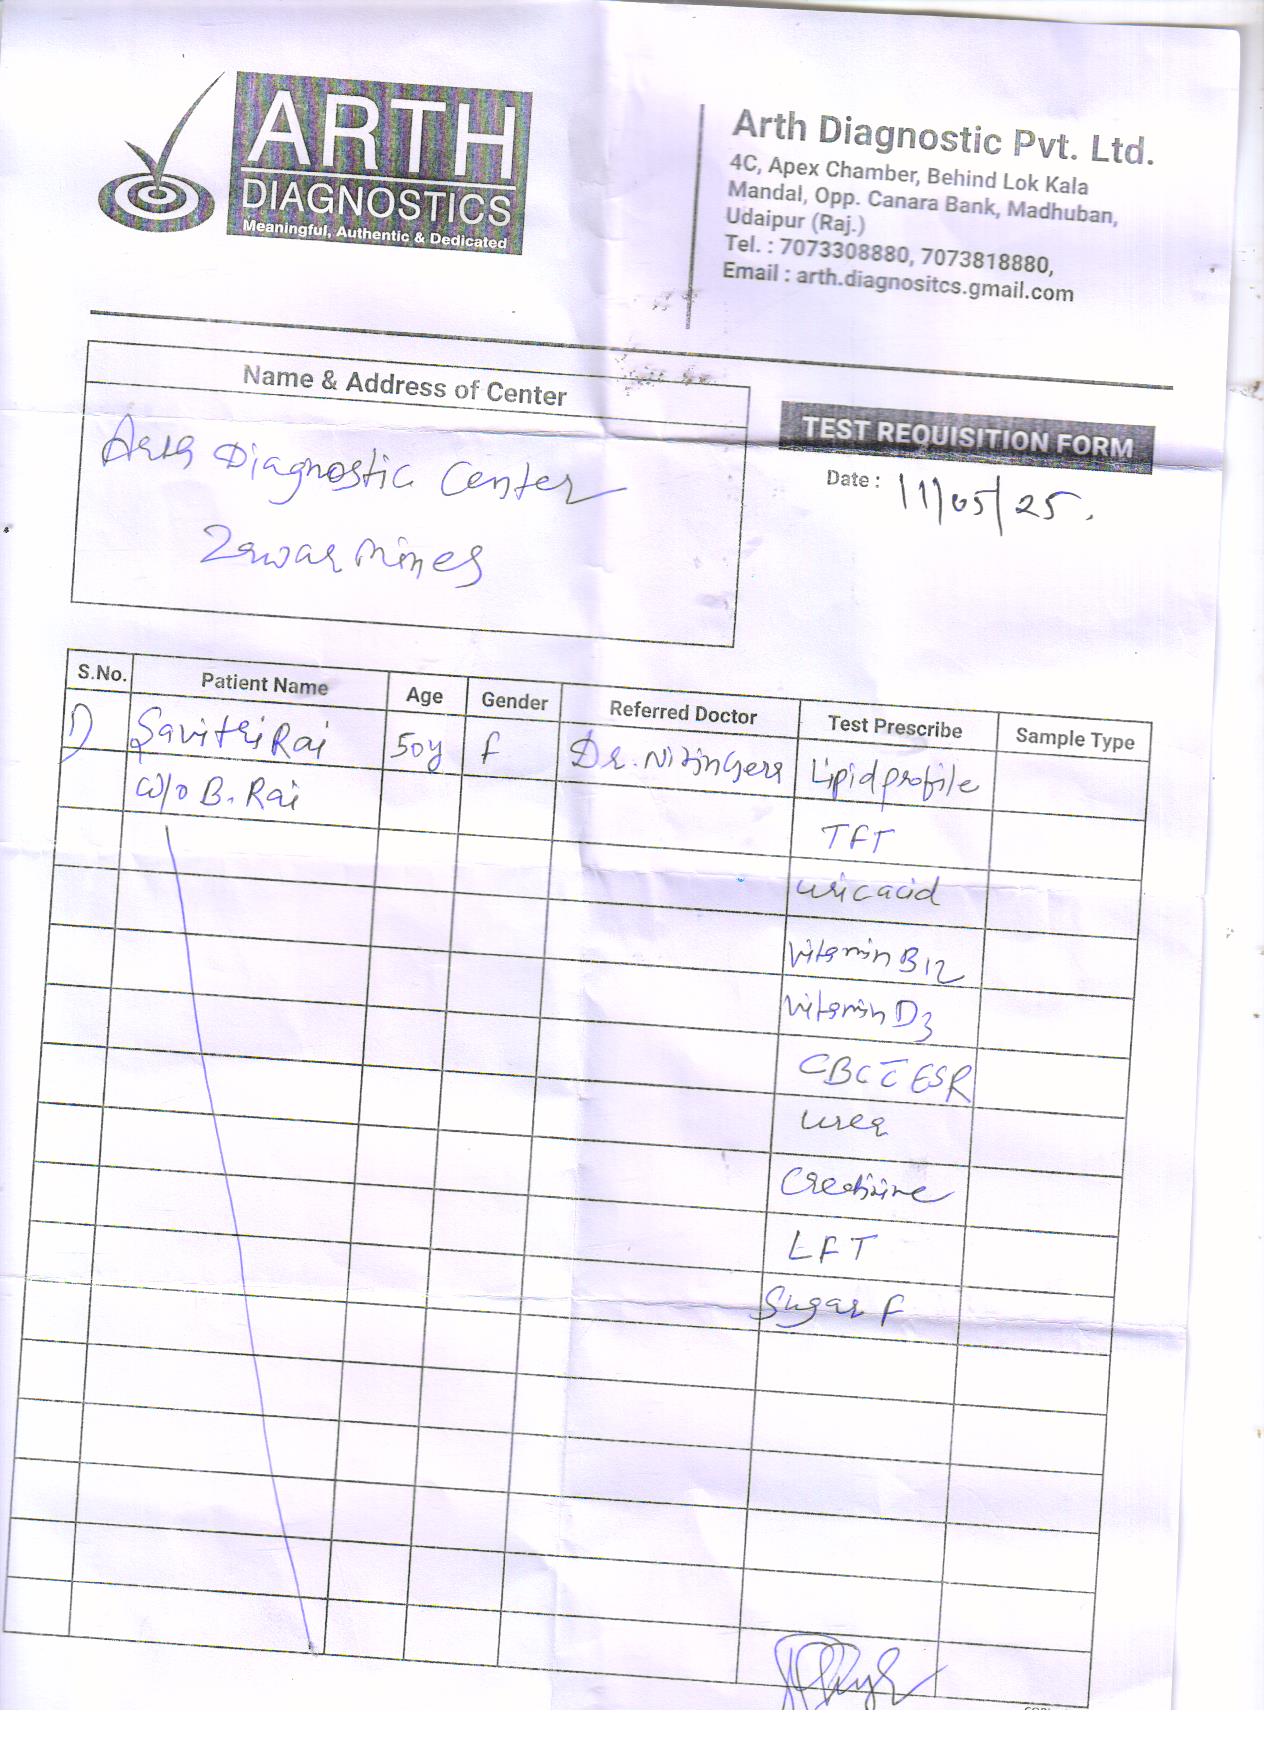 ARTH
DIAGNOSTICS
Meaningful, Authentic & Dedicated
Arth Diagnostic Pvt. Ltd.
4C, Apex Chamber, Behind Lok Kala
Mandal, Opp. Canara Bank, Madhuban,
Udaipur (Raj.)
Tel. : 7073308880, 7073818880,
Email : arth.diagnositcs.gmail.com
Name & Address of Center
Arth Diagnostic Center
Zawar Mines
TEST REQUISITION FORM
Date : 11/05/25.
S.No. Patient Name Age Gender Referred Doctor Test Prescribe Sample Type
1) Savitri Rai 50y F Dr. Nitin Lipid profile
W/o B. Rai
TFT
uric acid
Vitamin B12
Vitamin D3
CBC c̄ ESR
urea
Creatinine
LFT
Sugar F